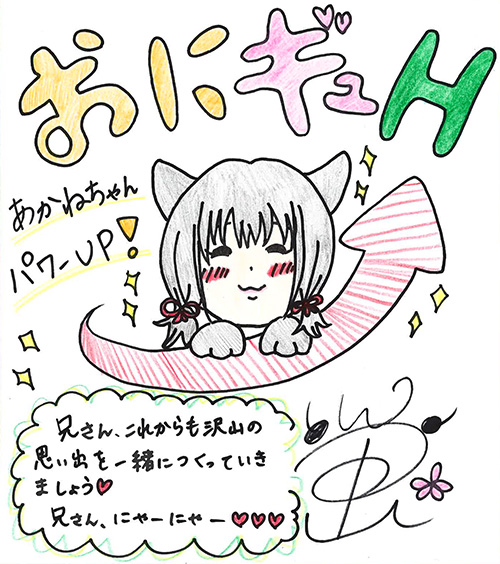 おにキュH
あかねちゃん
パワーUP!
兄さん、これからも沢山の
思い出を一緒につくっていき
ましょう♥
兄さん、にゃーにゃー♥♥♥